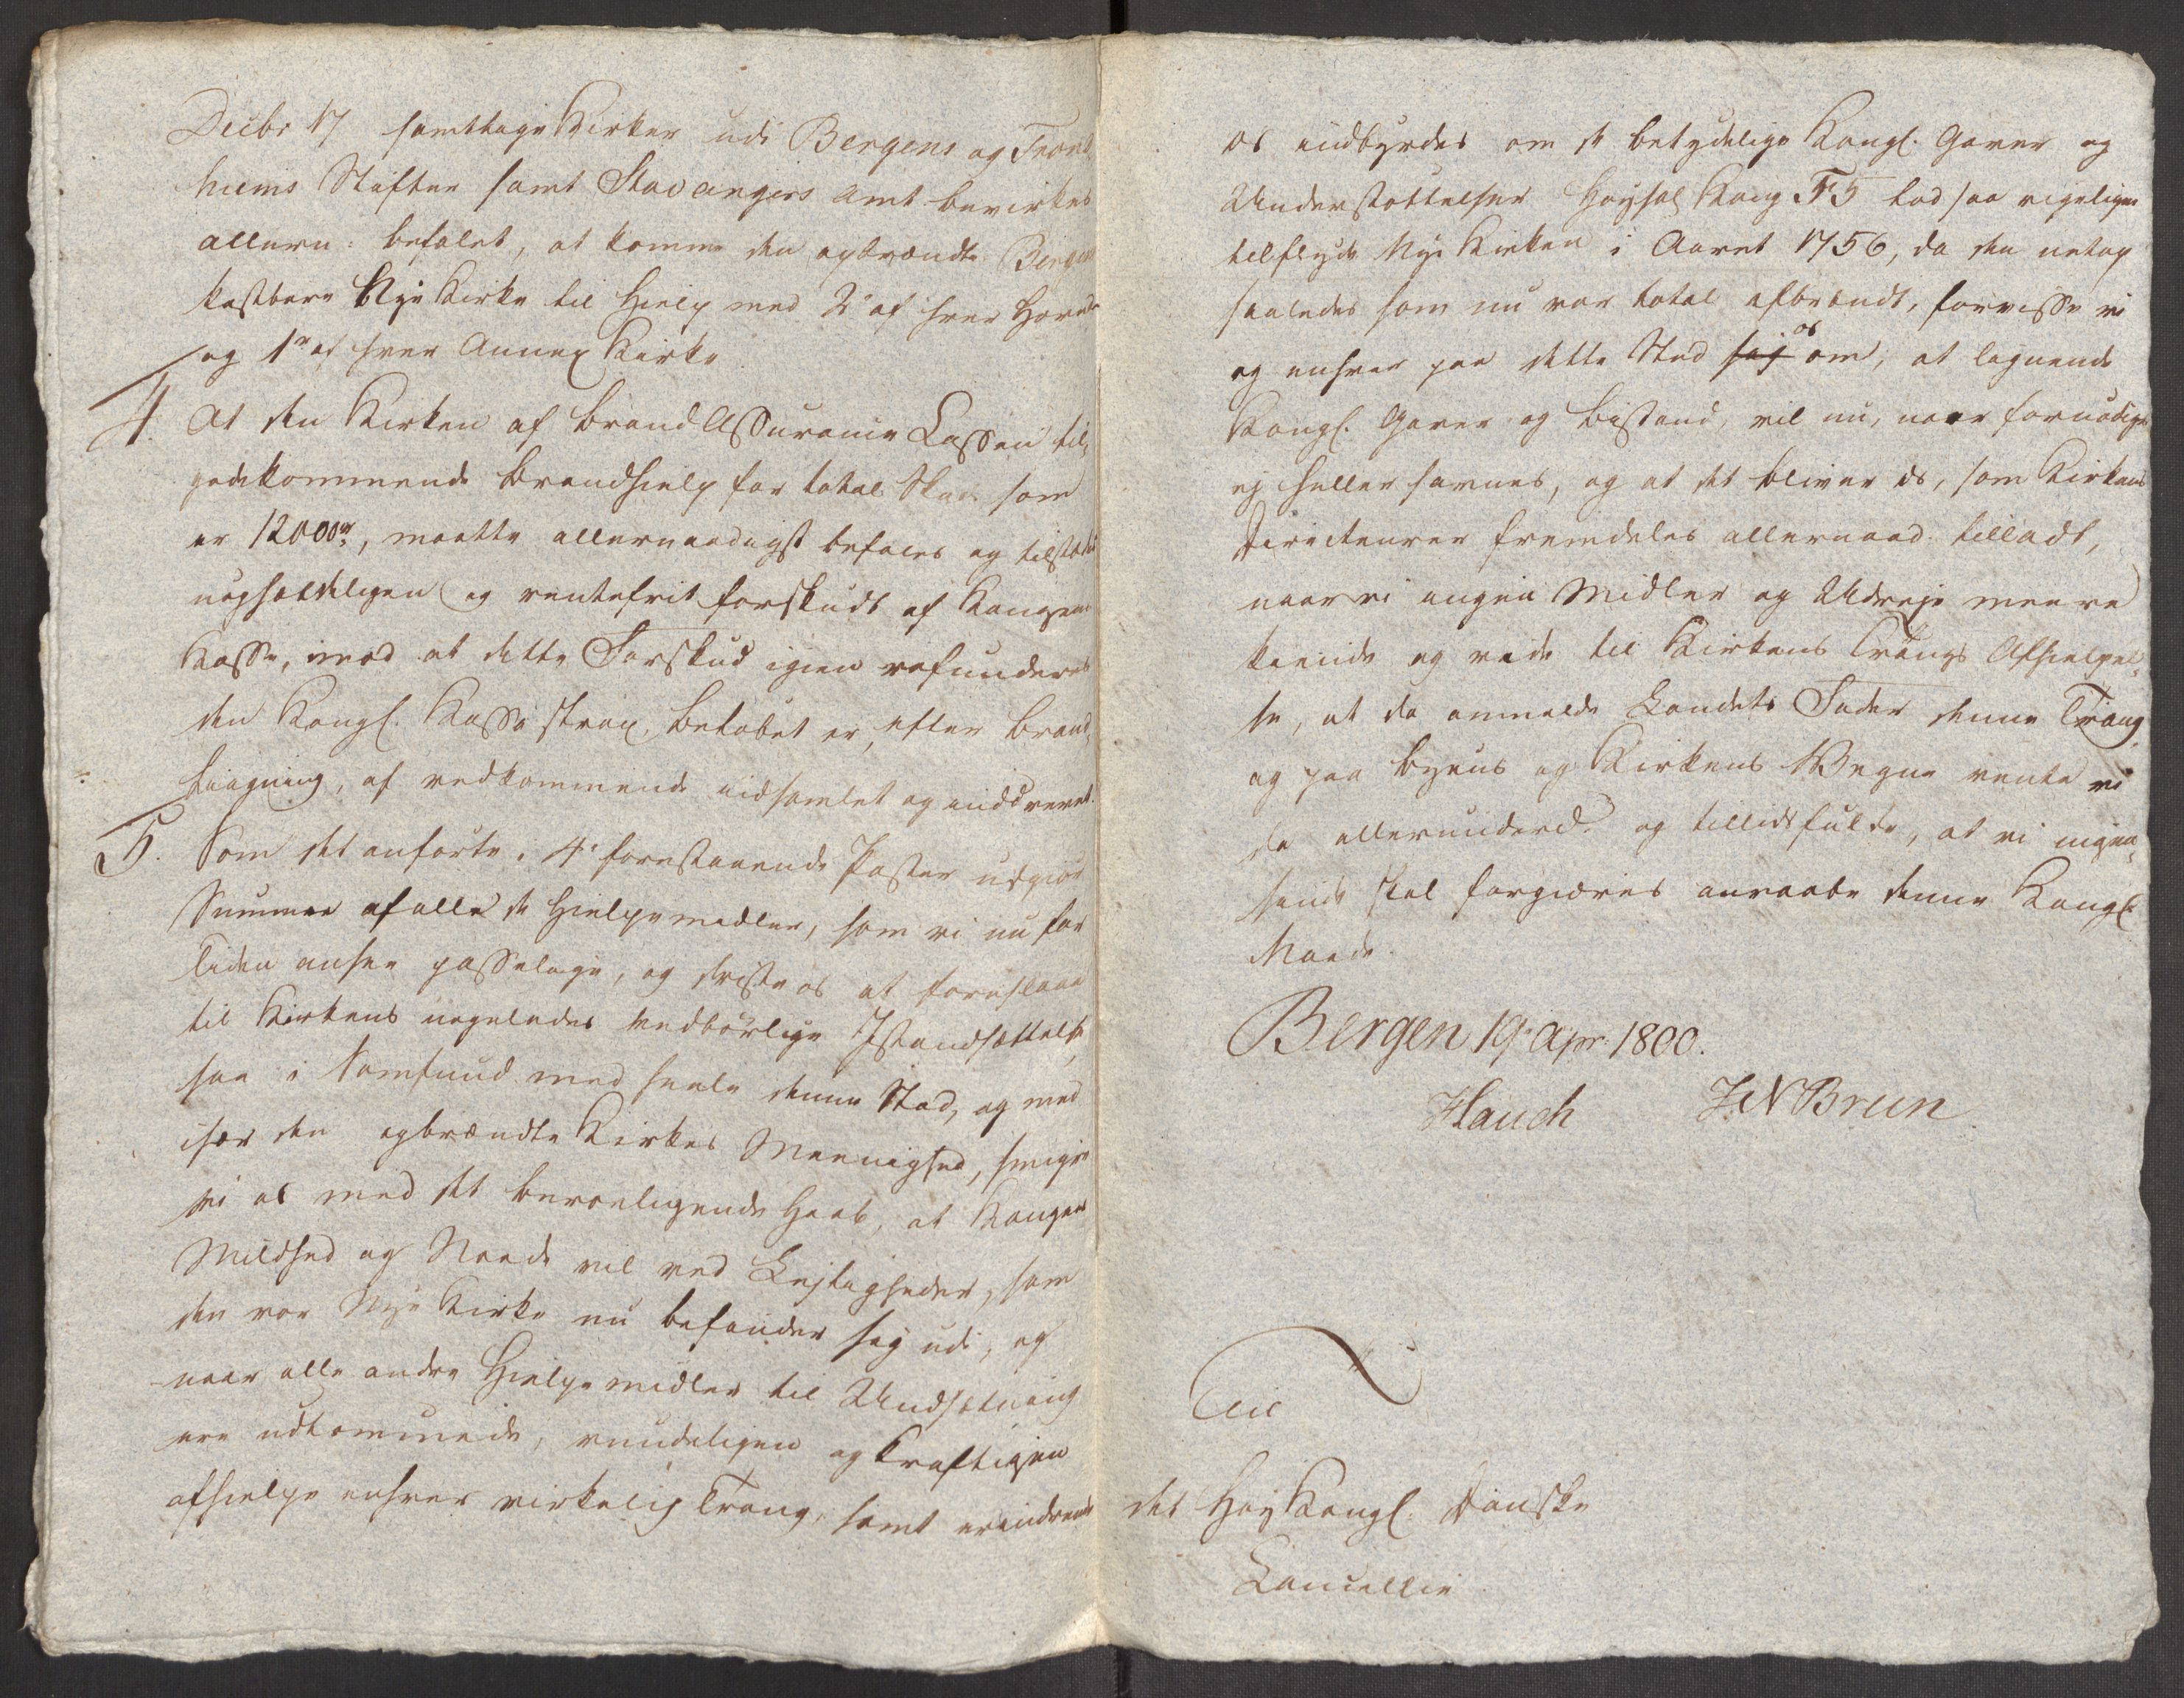 Decbr 17 samtlige Kirker udi Bergens og Trond
hiems Stifter samt Stavangers Amt bevirkes
allern: befalet, at komme den opbrændte Bergens
kostbare Nye Kirke til Hielp med 2rd af hver Hoved
og 1rd af hver Annex Kirke
4. At den Kirken af Brand Assurance Cassen til
godekommende Brandhielp for total Skade som
er 12000rd, maatte allernaadigst befales og tilstædes
uopholdeligen og rentefrit forskudt af Kongens
Kasse, imod at dette Forskud igien refunderes
den Kongl. Kasse strax, beløbet er, efter Brand
Ligning, af vedkommende indsamlet og inddrevet.
5. Som det anførte i 4 forestaaende Poster udgiør
Summen af alle de Hielpemidler, som vi nu for
Tiden ansee passelige, og driste os at foreslaae
til Kirkens nogeledes vedbørlige Istandsættelse
saa i Samfund med heele denne Stad, og med
især den opbrændte Kirkes Meenighed, smigre
vi os med det beroeligende Haab, at Kongens
Mildhed og Naade vil ved Lejligheder, som
den vor Nye Kirke nu befinder sig udi, og
naar alle andre Hielpemidler til Undsetning
ere udtømmede, vundeligen og kraftigen
afhielpe enhver virkelig Trang, samt erindrende
os indbyrdes om de betydelige Kongl. Gaver og
Understøttelser Høysal Kong F5 lod saa rigeligen
tilflyde Nye Kirken i Aaret 1756, da den netop
saaledes som nu var total afbrændt, forvisse vi
og enhver paa dette Sted sig os om, at lignende
Kongl. Gaver og Bistand, vil nu, naar fornødiges
ej heller savnes, og at det bliver os, som Kirkens
Directeurer fremdeles allernaad. tilladt,
naar vi ingen Midler og Udveje meere
kiende og vide til Kirkens Trangs Afhielpel
se, at da anmelde Landets Fader denne Trang,
og paa Byens og Kirkens Vegne vente vi
da allerunderd. og tillidsfulde, at vi ingen
sinde skal forgieves anraabe denne Kongl.
Naade.
Bergen 19 Apr: 1800.
Hauch JN Brun
Til
det Høy Kongl. Danske
Cancellie